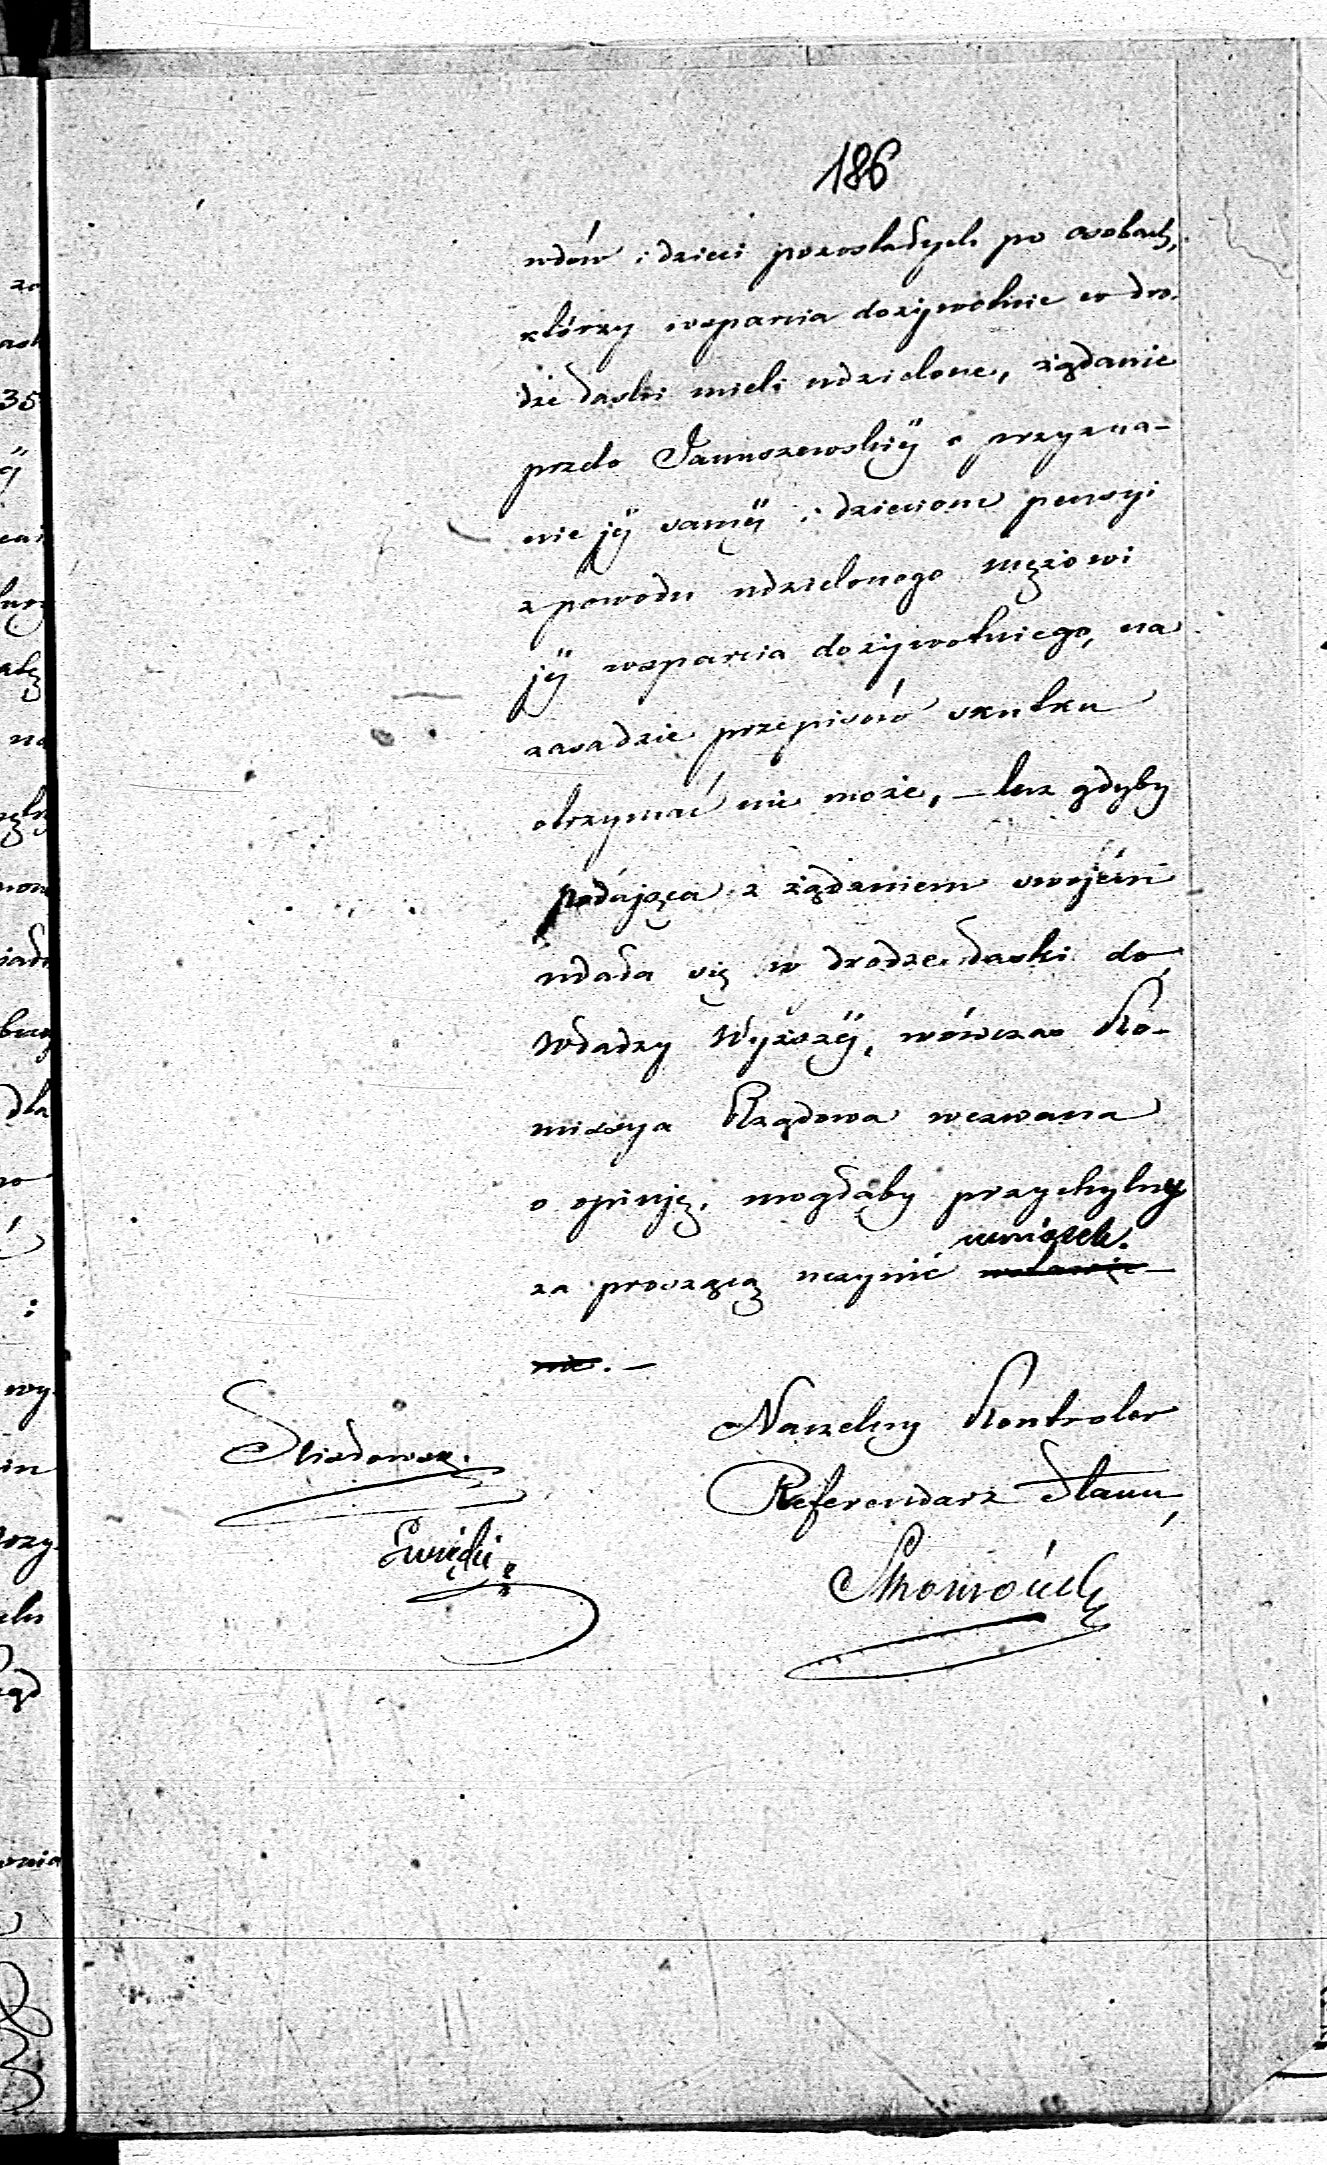 186
wdów i dzieci pozostałych po osobach,
którzy wsparcia dożywotnie w dro-
dze łaski mieli udzielone, żądanie
przeto Januszewskiéj o przyzna-
nie jéj saméj i dzieciom pensyi
z powodu udzielonego mężowi
jéj wsparcia dożywotniego, na
zasadzie przepisów skutku
otrzymać nie może, – lecz gdyby
podająca z żądaniem swojém
udała się w drodze łaski do
Władzy Wyższéj, wówczas Ko-
missya Rządowa wezwana
o opinję, mogłaby przychylny
wniosek.
za proszącą uczynić
nie. –
Naczelny Kontroler
Referendarz Stanu,
Święcki